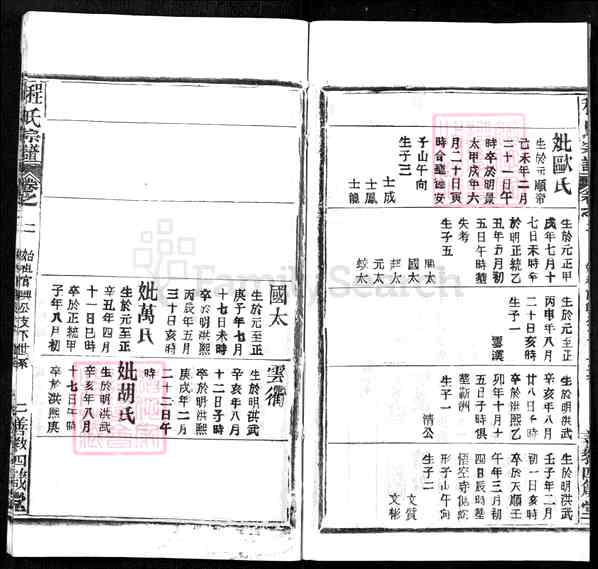 妣歐氏
生於元順帝
己未年二月
二十一日午
時卒於明景
太甲戌年六
月二十日寅
時合葬德安
子山午向
生子三
士成
士鳳
士龍
生於元正甲
戌年七月十
七日未時卒
於明正統乙
丑年五月初
五日午時葬
失考
生子五
興太
國太
超太
元太
蛟太
丙申年八月
二十日亥時
生子一
雲漢
生於明洪武
辛亥年八月
廿八日子時
卒於洪熙乙
卯年十月十
五日子時俱
葬新洲
生子一
清公
生於明洪武
壬子年二月
初一日亥時
卒於天順壬
午年三月初
四日辰時葬
悟空寺
形子山午向
生子二
文質
文彬
程氏宗譜
卷之
二
始祖官興公技下世系
二善教四箴堂
國太
生於元至正
庚子年七月
十七日未時
卒於明洪熙
丙辰年五月
三十日亥時
妣萬氏
生於元至正
辛丑年四月
十一日巳時
卒於正統甲
子年八月初
雲衢
生於明洪武
辛亥年八月
十二日子時
卒於明洪熙
庚戌年二月
二十二日午
時
妣胡氏
生於明洪武
辛亥年八月
十七日午時
卒於洪熙庚
FamilySearch